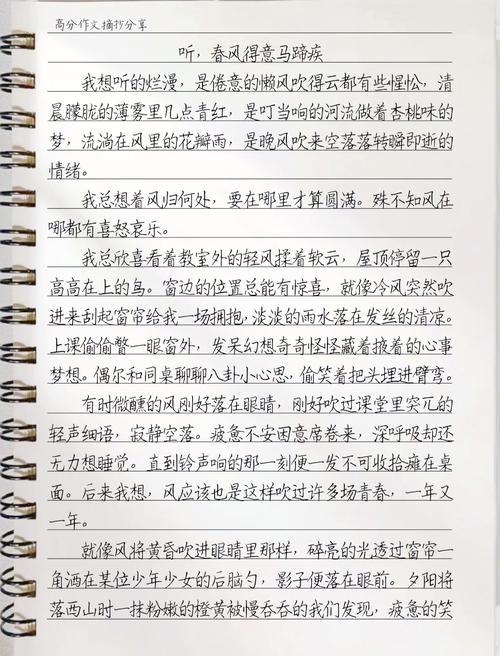 高分作文摘抄分享
听，春风得意马蹄疾
我想听的烂漫，是倦意的懒风吹得云都有些惺忪，清
晨朦胧的薄雾里几点青红，是叮当响的河流做着杏桃味的
梦，流淌在风里的花瓣雨，是晚风吹来空落落转瞬即逝的
情绪。
我总想着风归何处，要在哪里才算圆满。殊不知风在
哪都有喜怒哀乐。
我总欣喜看着教室外的轻风揉着软云，屋顶停留一只
高高在上的鸟。窗边的位置总能有惊喜，就像冷风突然吹
进来刮起窗帘给我一场拥抱，淡淡的雨水落在发丝的清凉。
上课偷偷瞥一眼窗外，发呆幻想奇奇怪怪藏着掖着的心事
梦想。偶尔和同桌聊聊八卦小心思，偷笑着把头埋进臂弯。
有时微醺的风刚好落在眼睛，刚好吹过课堂里突兀的
轻声细语，寂静空落。疲惫不安困意席卷来，深呼吸却还
无力想睡觉。直到铃声响的那一刻便一发不可收拾瘫在桌
面。后来我想，风应该也是这样吹过许多场青春，一年又
一年。
就像风将黄昏吹进眼睛里那样，碎亮的光透过窗帘一
角洒在某位少年少女的后脑勺，影子便落在眼前。夕阳将
落西山时一抹粉嫩的橙黄被慢吞吞的我们发现，疲惫的笑